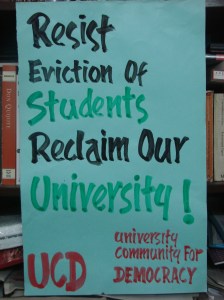 Resist
Eviction Of
Students
Reclaim Our
University!
University
Community For
UCD
DEMOCRACY
Don Quixote